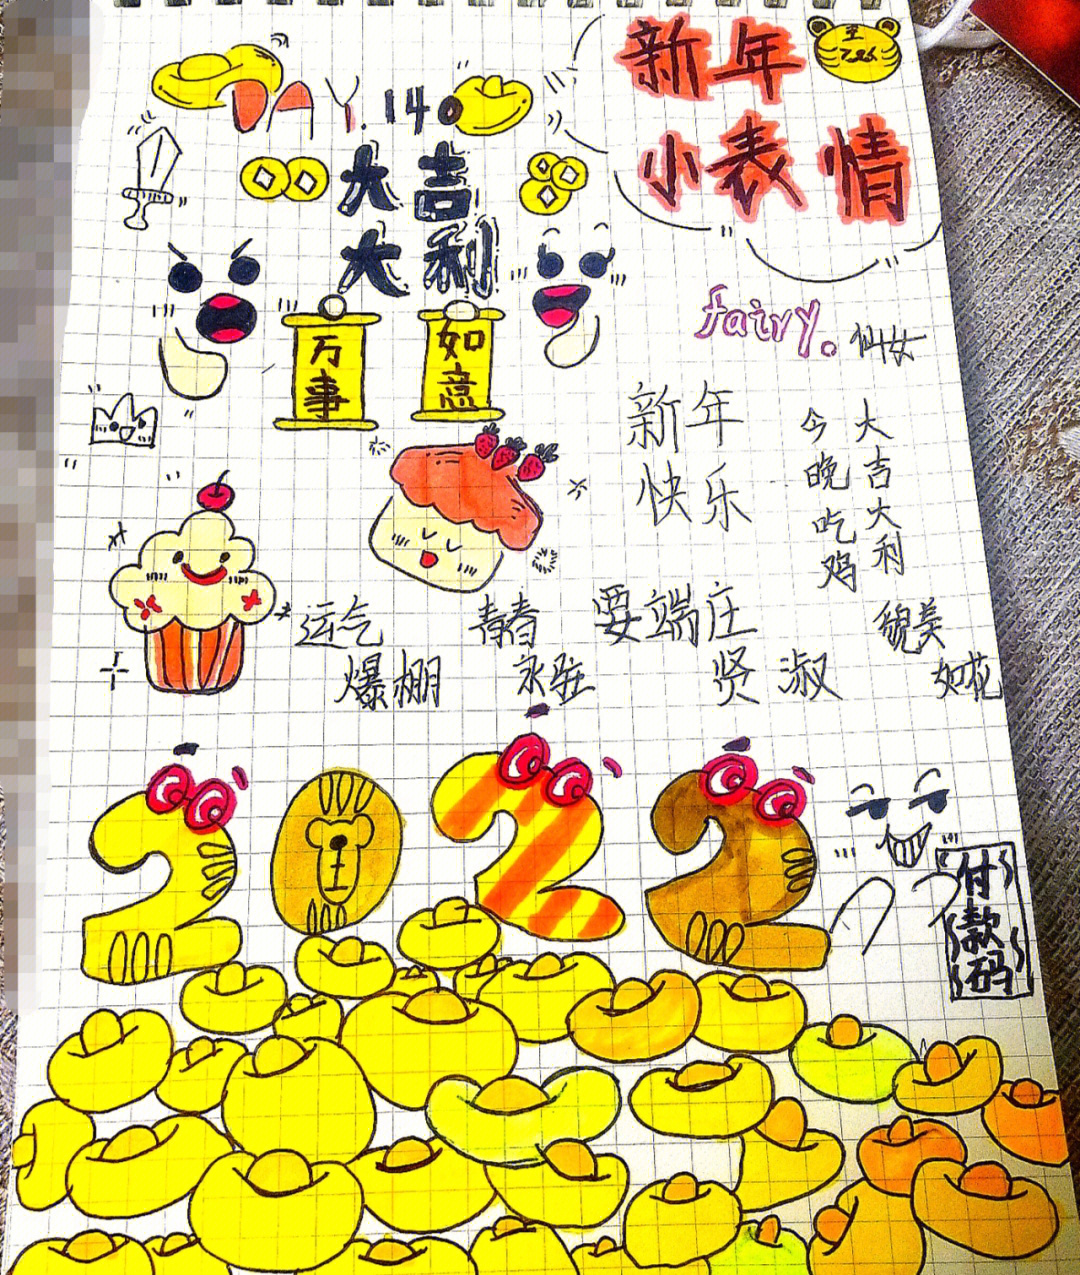 新年
小表情
王
DAY.140
大吉
大利
万事
如意
fairy.
仙女
新年
快乐
大吉大利
今晚吃鸡
运气
爆棚
青春
永驻
要端庄
贤淑
貌美
如花
2022
付款码